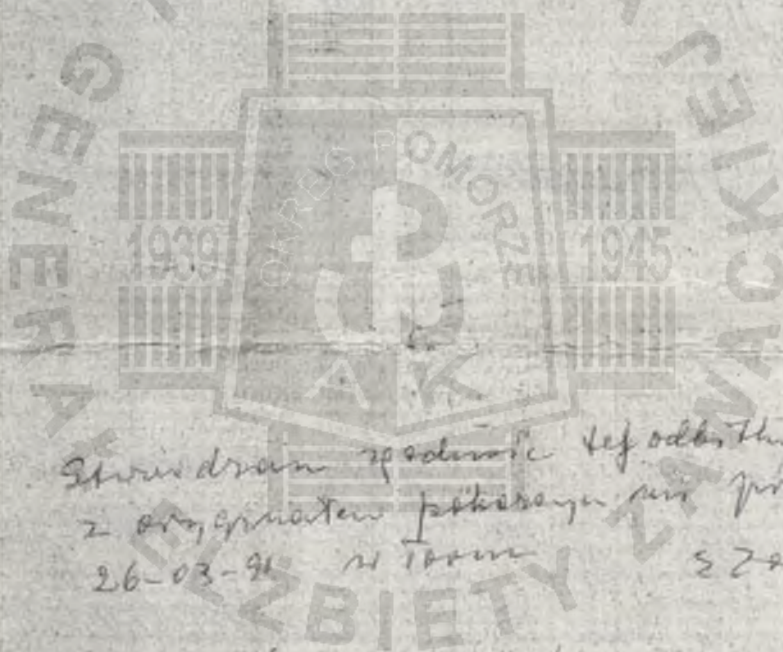 GENERAŁ ELŻBIETY ZAWACKIEJ
OKRĘG POMORZE
1939 1945
AK
Stwierdzam zgodność tej odbitki
z oryginałem pokazanym mi
26-03-91 w Toruniu